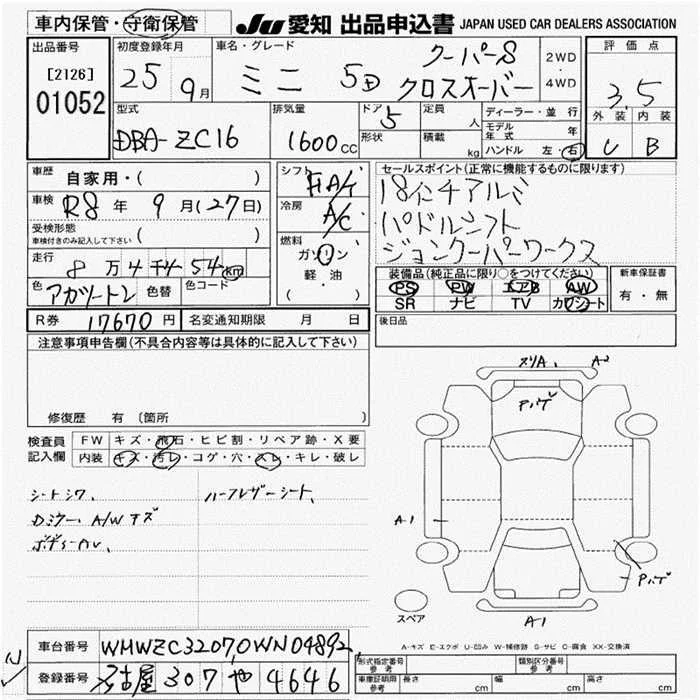 車内保管・守衛保管
JU 愛知 出品申込書 JAPAN USED CAR DEALERS ASSOCIATION
出品番号
[2126]
01052
初度登録年月
25 9月
車名・グレード
ミニ 5D クーパーS
クロスオーバー
2WD
・
4WD
評価点
3.5
外装 内装
B
型式
DBA-ZC16
排気量
1600cc
ドア
5
形状
定員
人
積載
kg
ディーラー・並行
モデル年式 年
ハンドル 左・右
車歴
自家用・( )
車検
R8年 9月(27日)
受検形態
車検付きのみ記入して下さい ( )
走行
8万4千454km
色
色替
色コード
シフト
FAT
冷房
A/C
燃料
ガソリン
軽油
( ・ )
セールスポイント(正常に機能するものに限ります)
18インチアルミ
パドルシフト
ジョンクーパーワークス
装備品(純正品に限り○をつけてください)
PS PW エアB AW
SR ナビ TV カワシート
新車保証書
有・無
後日品
R券 17670円
名変通知期限 月 日
注意事項申告欄(不具合内容等は具体的に記入して下さい)
修復歴 有 〔箇所
検査員
記入欄
FW キズ・飛石・ヒビ割・リペア跡・X要
内装 キズ・汚レ・コゲ・穴・スレ・キレ・破レ
シートシワ、
ハーフレザーシート、
Dミラー、A/Wキズ
スリA、 A2
Pハゲ
A1
Pハゲ
A1
スペア
A-キズ E-エクボ U-凹み W-補修跡 S-サビ C-腐食 XX-交換済
車台番号 WMWZC32070WN04892
登録番号 名古屋 307 や 4646
形式指定番号
参考
類別区分番号
参考
車庫証明用
参考
長さ cm
幅 cm
高さ cm